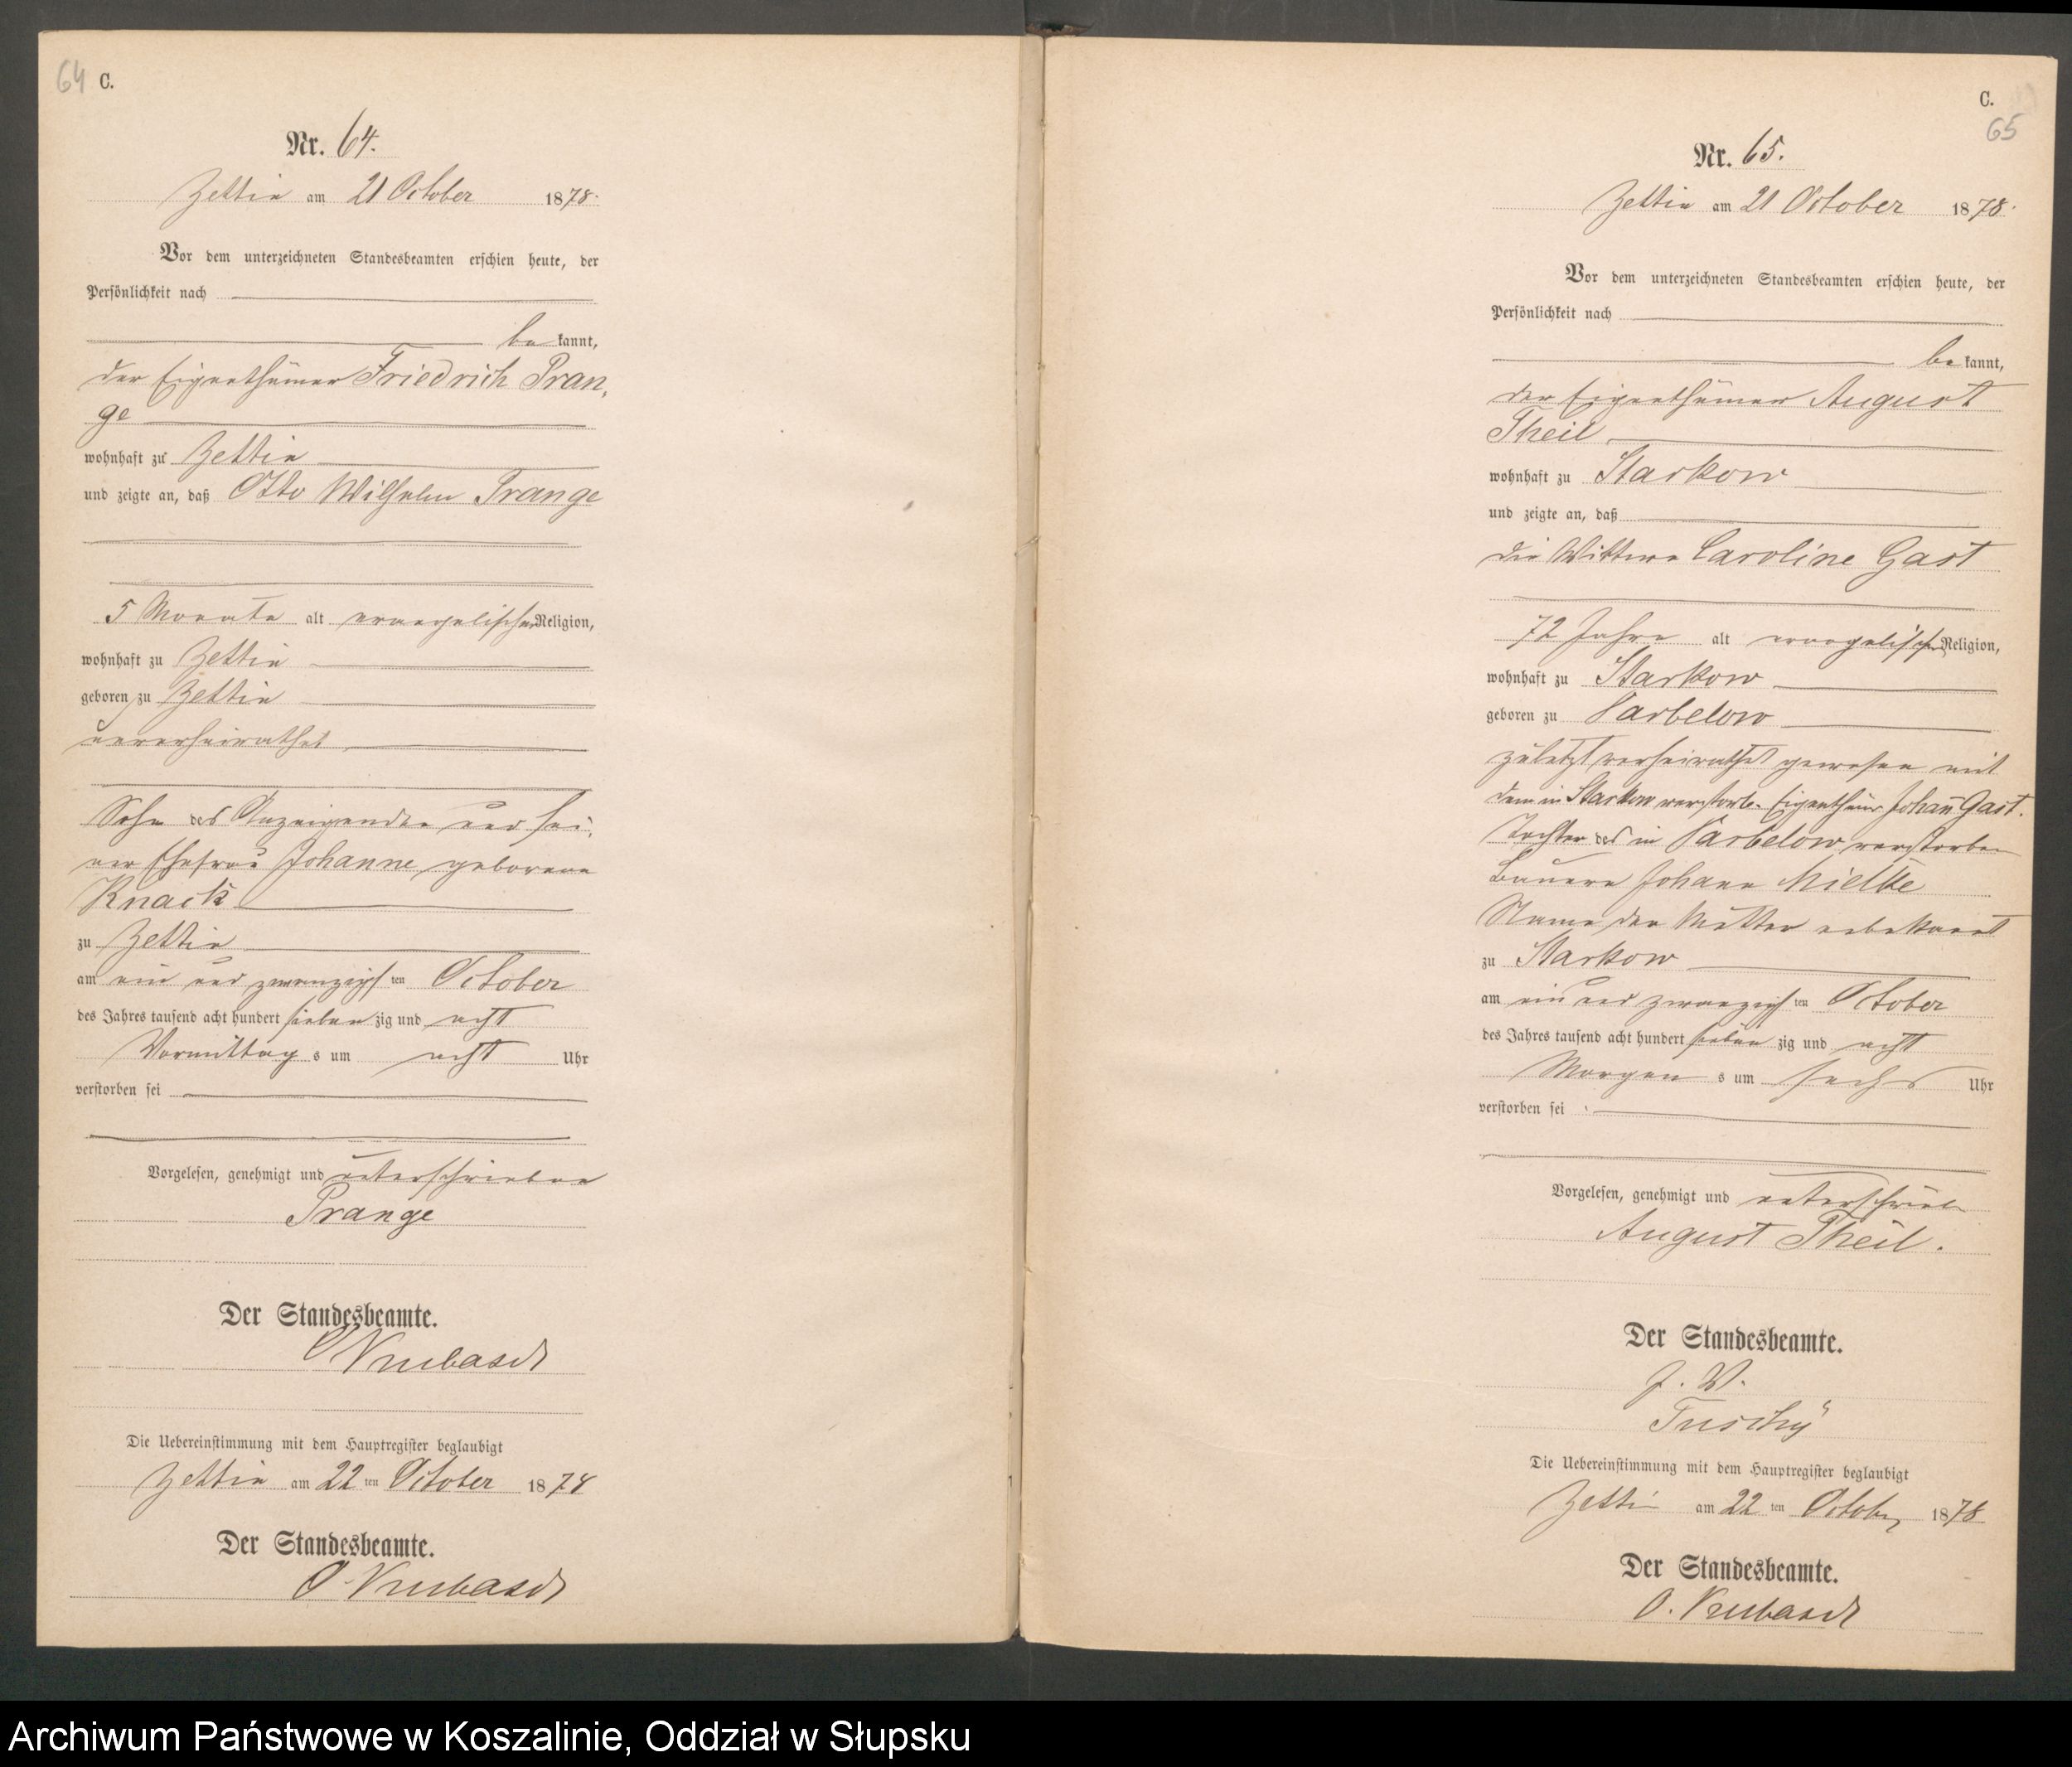 64 C.
Nr. 64.
Zettin am 21 October 1878.
Vor dem unterzeichneten Standesbeamten erschien heute, der
Persönlichkeit nach
be kannt,
der Eigenthümer Friedrich Pran,
ge
wohnhaft zu Zettin
und zeigte an, daß Otto Wilhelm Prange
5 Monate alt evangelischer Religion,
wohnhaft zu Zettin
geboren zu Zettin
unverheirathet
Sohn des Anzeigenden und sei,
ner Ehefrau Johanne geborene
Knack
zu Zettin
am ein und zwanzigs ten October
des Jahres tausend acht hundert sieben zig und acht
Vormittag s um acht Uhr
verstorben sei
Vorgelesen, genehmigt und unterschrieben
Prange
Der Standesbeamte.
Die Uebereinstimmung mit dem Hauptregister beglaubigt
Zettin am 22 ten October 1878
Der Standesbeamte.
C.
65
Nr. 65.
Zettin am 21 October 1878.
Vor dem unterzeichneten Standesbeamten erschien heute, der
Persönlichkeit nach
be kannt,
der Eigenthümer August
Theil
wohnhaft zu Starkow
und zeigte an, daß
die Wittwe Caroline Gast
72 Jahre alt evangelisch Religion,
wohnhaft zu Starkow
geboren zu Varbelow
zuletzt verheirathet gewesen mit
dem in Starkow verstorb. Eigenthümer Johan̄ Gast.
Tochter des in Varbelow verstorben
Bauern Johann Mielke
Name der Mutter unbekannt
zu Starkow
am ein und zwanzigs ten October
des Jahres tausend acht hundert sieben zig und acht
Morgen s um sechs Uhr
verstorben sei
Vorgelesen, genehmigt und unterschrieb
August Theil.
Der Standesbeamte.
J. V.
Die Uebereinstimmung mit dem Hauptregister beglaubigt
Zettin am 22 ten October 1878
Der Standesbeamte.
Archiwum Państwowe w Koszalinie, Oddział w Słupsku